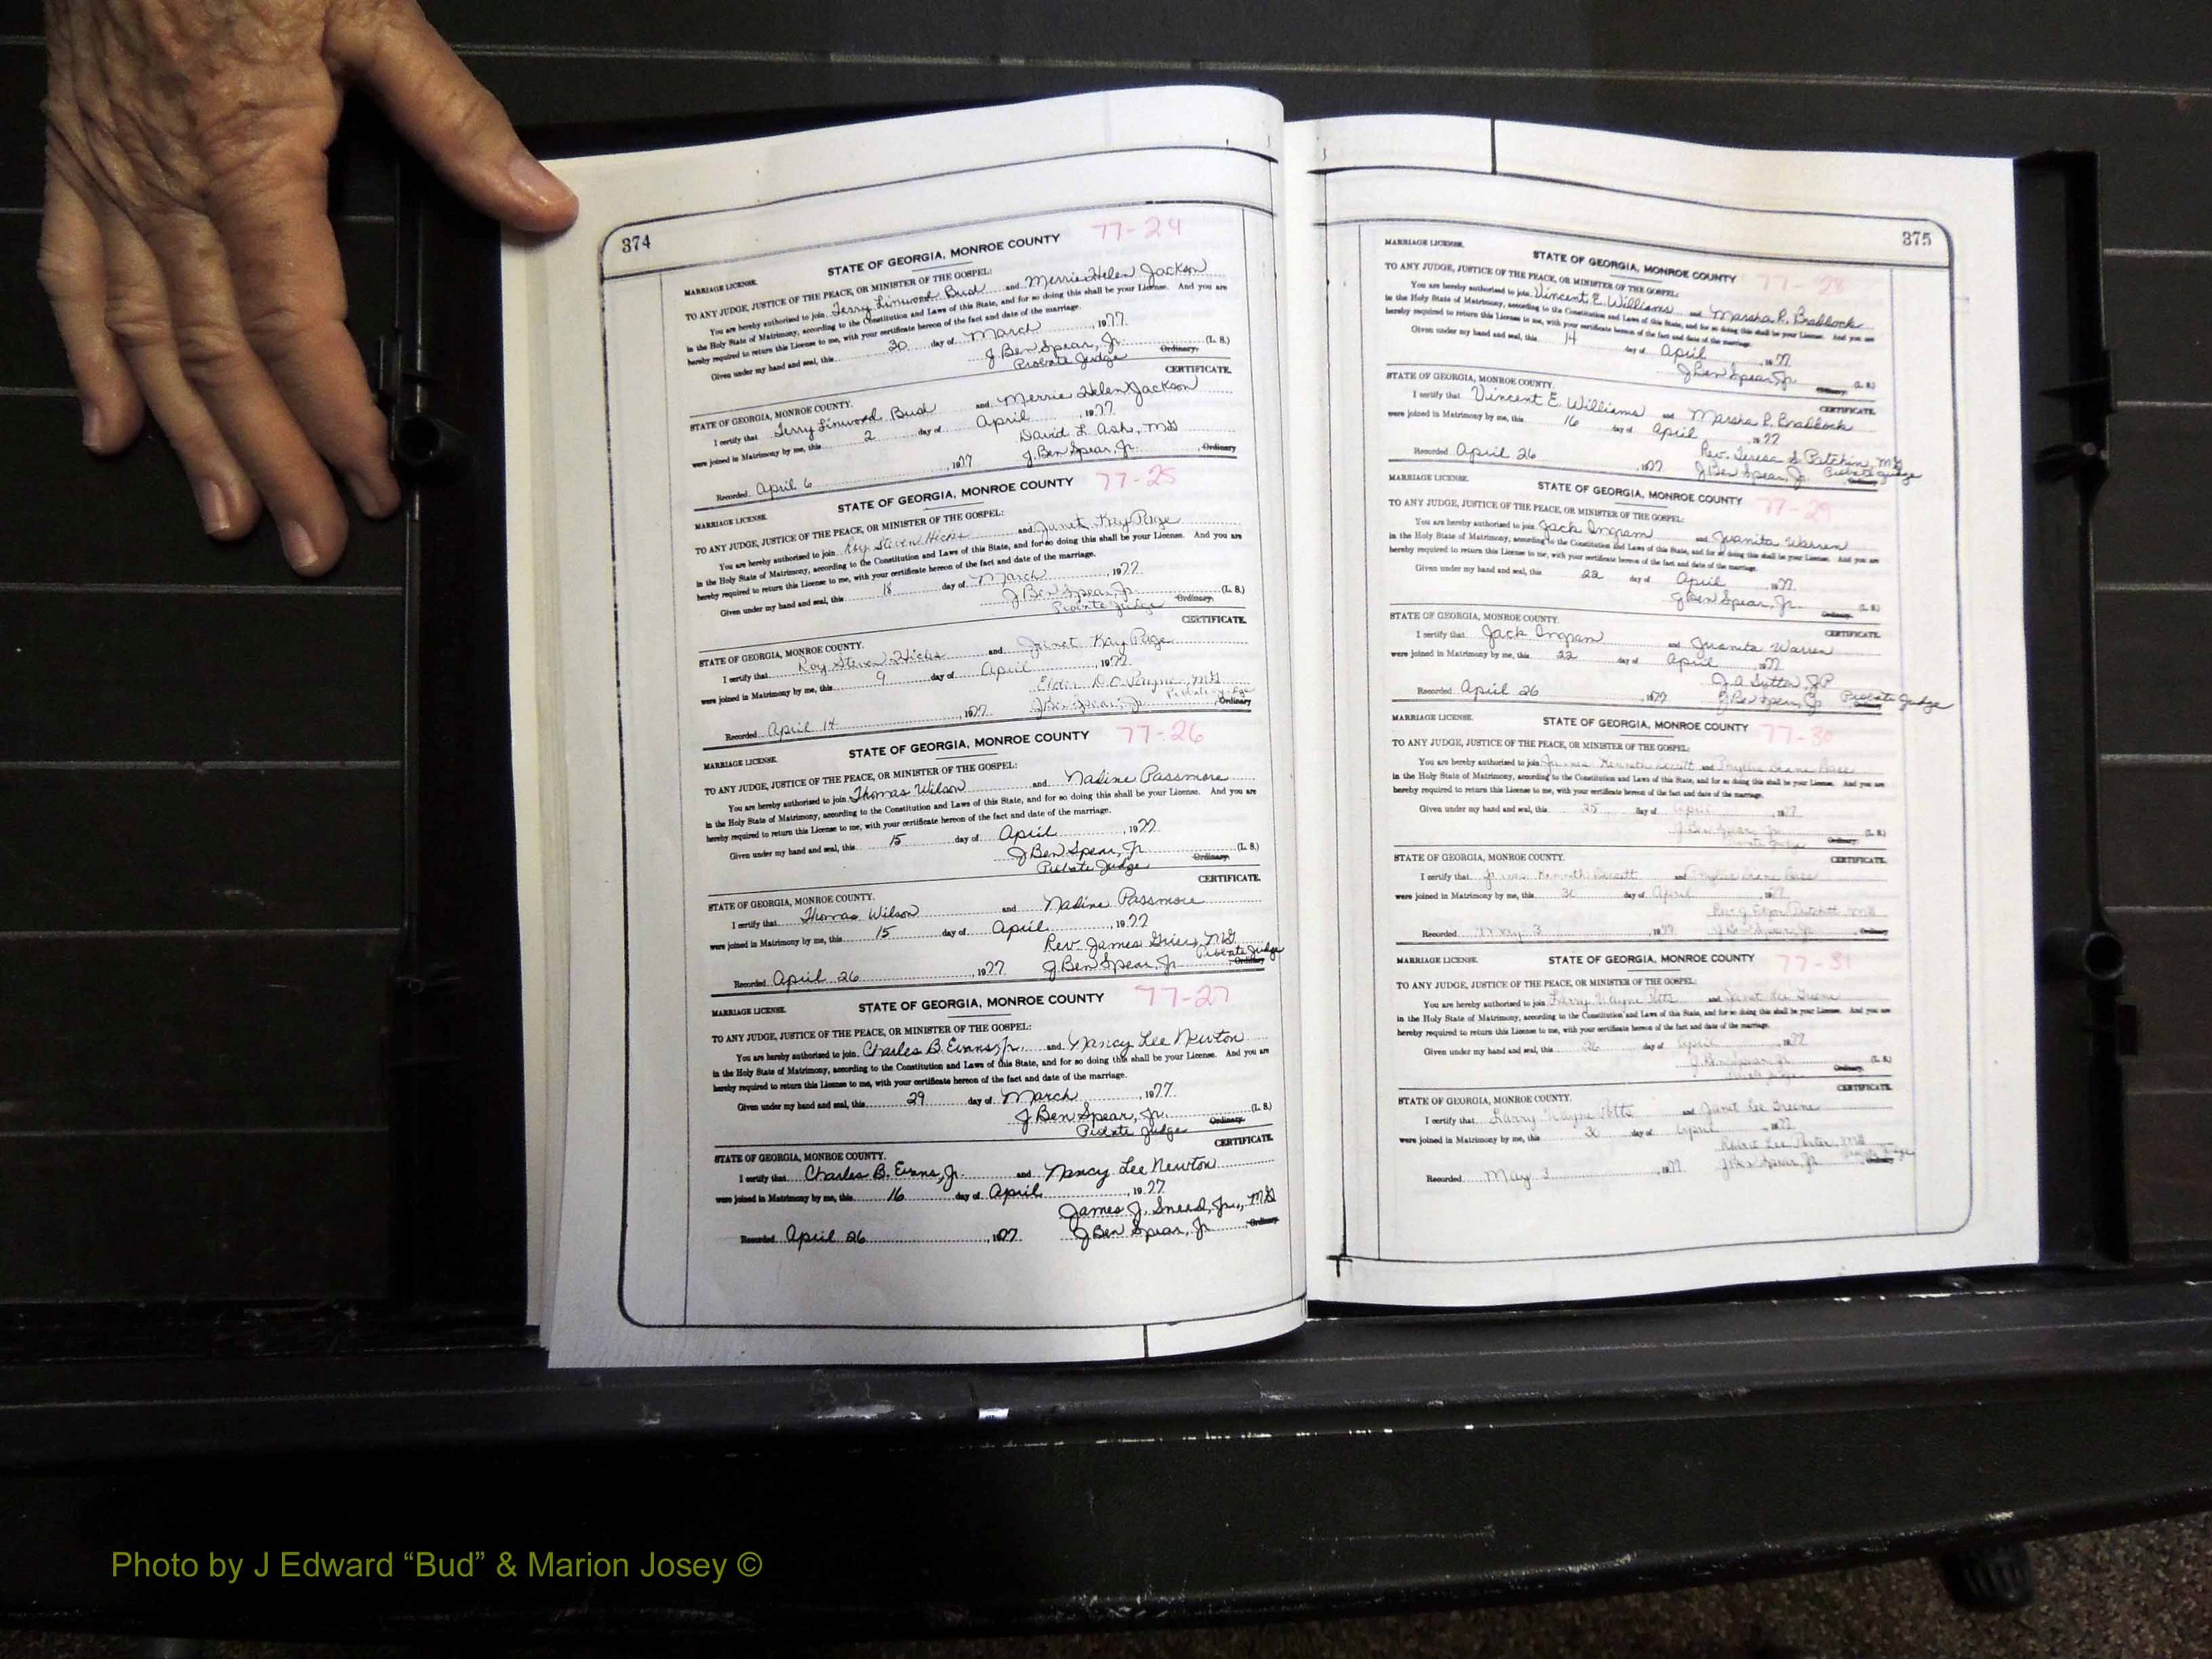 374
77-24
STATE OF GEORGIA, MONROE COUNTY
MARRIAGE LICENSE.
TO ANY JUDGE, JUSTICE OF THE PEACE, OR MINISTER OF THE GOSPEL:
You are hereby authorised to join Terry Linwood Bud and Merrie Helen Jackson
in the Holy State of Matrimony, according to the Constitution and Laws of this State, and for so doing this shall be your License. And you are
hereby required to return this License to me, with your certificate hereon of the fact and date of the marriage.
Given under my hand and seal, this 30 day of March, 1977
J Ben Spear, Jr. (L. S.)
Probate Judge Ordinary.
CERTIFICATE.
STATE OF GEORGIA, MONROE COUNTY.
I certify that Terry Linwood Bud and Merrie Helen Jackson
were joined in Matrimony by me, this 2 day of April, 1977
David L. Ash, MG
Recorded April 6, 1977 J. Ben Spear, Jr. Ordinary
77-25
STATE OF GEORGIA, MONROE COUNTY
MARRIAGE LICENSE.
TO ANY JUDGE, JUSTICE OF THE PEACE, OR MINISTER OF THE GOSPEL:
You are hereby authorised to join Roy Steven Hicks and Janet Kay Page
in the Holy State of Matrimony, according to the Constitution and Laws of this State, and for so doing this shall be your License. And you are
hereby required to return this License to me, with your certificate hereon of the fact and date of the marriage.
Given under my hand and seal, this 18 day of March, 1977
J Ben Spear, Jr. (L. S.)
Probate Judge Ordinary.
CERTIFICATE.
STATE OF GEORGIA, MONROE COUNTY.
I certify that Roy Steven Hicks and Janet Kay Page
were joined in Matrimony by me, this 9 day of April, 1977
Elder D.O. Payne, MG
Probate Judge
Recorded April 14, 1977 J Ben Spear, Jr. Ordinary
77-26
STATE OF GEORGIA, MONROE COUNTY
MARRIAGE LICENSE.
TO ANY JUDGE, JUSTICE OF THE PEACE, OR MINISTER OF THE GOSPEL:
You are hereby authorised to join Thomas Wilson and Nadine Passmore
in the Holy State of Matrimony, according to the Constitution and Laws of this State, and for so doing this shall be your License. And you are
hereby required to return this License to me, with your certificate hereon of the fact and date of the marriage.
Given under my hand and seal, this 15 day of April, 1977
J Ben Spear, Jr. (L. S.)
Probate Judge Ordinary.
CERTIFICATE.
STATE OF GEORGIA, MONROE COUNTY.
I certify that Thomas Wilson and Nadine Passmore
were joined in Matrimony by me, this 15 day of April, 1977
Rev. James Grier, MG
Probate Judge
Recorded April 26, 1977 J Ben Spear, Jr Ordinary
77-27
STATE OF GEORGIA, MONROE COUNTY
MARRIAGE LICENSE.
TO ANY JUDGE, JUSTICE OF THE PEACE, OR MINISTER OF THE GOSPEL:
You are hereby authorised to join Charles B. Evans, Jr. and Nancy Lee Newton
in the Holy State of Matrimony, according to the Constitution and Laws of this State, and for so doing this shall be your License. And you are
hereby required to return this License to me, with your certificate hereon of the fact and date of the marriage.
Given under my hand and seal, this 29 day of March, 1977
J Ben Spear, Jr. (L. S.)
Probate Judge Ordinary.
CERTIFICATE.
STATE OF GEORGIA, MONROE COUNTY.
I certify that Charles B. Evans, Jr. and Nancy Lee Newton
were joined in Matrimony by me, this 16 day of April, 1977
James J. Sneed, Jr., MG
Recorded April 26, 1977 J Ben Spear, Jr Ordinary
375
MARRIAGE LICENSE.
STATE OF GEORGIA, MONROE COUNTY 77-28
TO ANY JUDGE, JUSTICE OF THE PEACE, OR MINISTER OF THE GOSPEL:
You are hereby authorised to join Vincent E. Williams and Marsha R. Braddock
in the Holy State of Matrimony, according to the Constitution and Laws of this State, and for so doing this shall be your License. And you are
hereby required to return this License to me, with your certificate hereon of the fact and date of the marriage.
Given under my hand and seal, this 14 day of April, 1977
J Ben Spear, Jr. (L. S.)
Ordinary.
STATE OF GEORGIA, MONROE COUNTY. CERTIFICATE.
I certify that Vincent E. Williams and Marsha R. Braddock
were joined in Matrimony by me, this 16 day of April, 1977
Rev. Teresa S. Patchin, MG
Recorded April 26, 1977 J Ben Spear, Jr. Probate Judge
Ordinary
MARRIAGE LICENSE.
STATE OF GEORGIA, MONROE COUNTY 77-29
TO ANY JUDGE, JUSTICE OF THE PEACE, OR MINISTER OF THE GOSPEL:
You are hereby authorised to join Jack Ingram and Juanita Warren
in the Holy State of Matrimony, according to the Constitution and Laws of this State, and for so doing this shall be your License. And you are
hereby required to return this License to me, with your certificate hereon of the fact and date of the marriage.
Given under my hand and seal, this 22 day of April 1977
J Ben Spear, Jr. (L. S.)
Ordinary.
STATE OF GEORGIA, MONROE COUNTY. CERTIFICATE.
I certify that Jack Ingram and Juanita Warren
were joined in Matrimony by me, this 22 day of April, 1977
J. A. Sutton, JP
Recorded April 26, 1977 J Ben Spear, Jr Probate Judge
Ordinary
MARRIAGE LICENSE.
STATE OF GEORGIA, MONROE COUNTY 77-30
TO ANY JUDGE, JUSTICE OF THE PEACE, OR MINISTER OF THE GOSPEL:
You are hereby authorised to join James Kenneth and Phyllis Diane Bass
in the Holy State of Matrimony, according to the Constitution and Laws of this State, and for so doing this shall be your License. And you are
hereby required to return this License to me, with your certificate hereon of the fact and date of the marriage.
Given under my hand and seal, this 25 day of April, 1977
J Ben Spear, Jr. (L. S.)
Probate Judge Ordinary.
STATE OF GEORGIA, MONROE COUNTY. CERTIFICATE.
I certify that James Kenneth and Phyllis Diane Bass
were joined in Matrimony by me, this 30 day of April, 1977
Rev. MG
Recorded May 3, 1977 J Ben Spear, Jr. Ordinary
MARRIAGE LICENSE.
STATE OF GEORGIA, MONROE COUNTY 77-31
TO ANY JUDGE, JUSTICE OF THE PEACE, OR MINISTER OF THE GOSPEL:
You are hereby authorised to join Larry Wayne Potts and Janet Lee Greene
in the Holy State of Matrimony, according to the Constitution and Laws of this State, and for so doing this shall be your License. And you are
hereby required to return this License to me, with your certificate hereon of the fact and date of the marriage.
Given under my hand and seal, this 26 day of April, 1977
J Ben Spear, Jr. (L. S.)
Probate Judge Ordinary.
CERTIFICATE.
STATE OF GEORGIA, MONROE COUNTY.
I certify that Larry Wayne Potts and Janet Lee Greene
were joined in Matrimony by me, this 30 day of April, 1977
Robert Lee Porter, MG
Probate Judge
Recorded May 3, 1977 J Ben Spear, Jr. Ordinary
Photo by J Edward “Bud” & Marion Josey ©